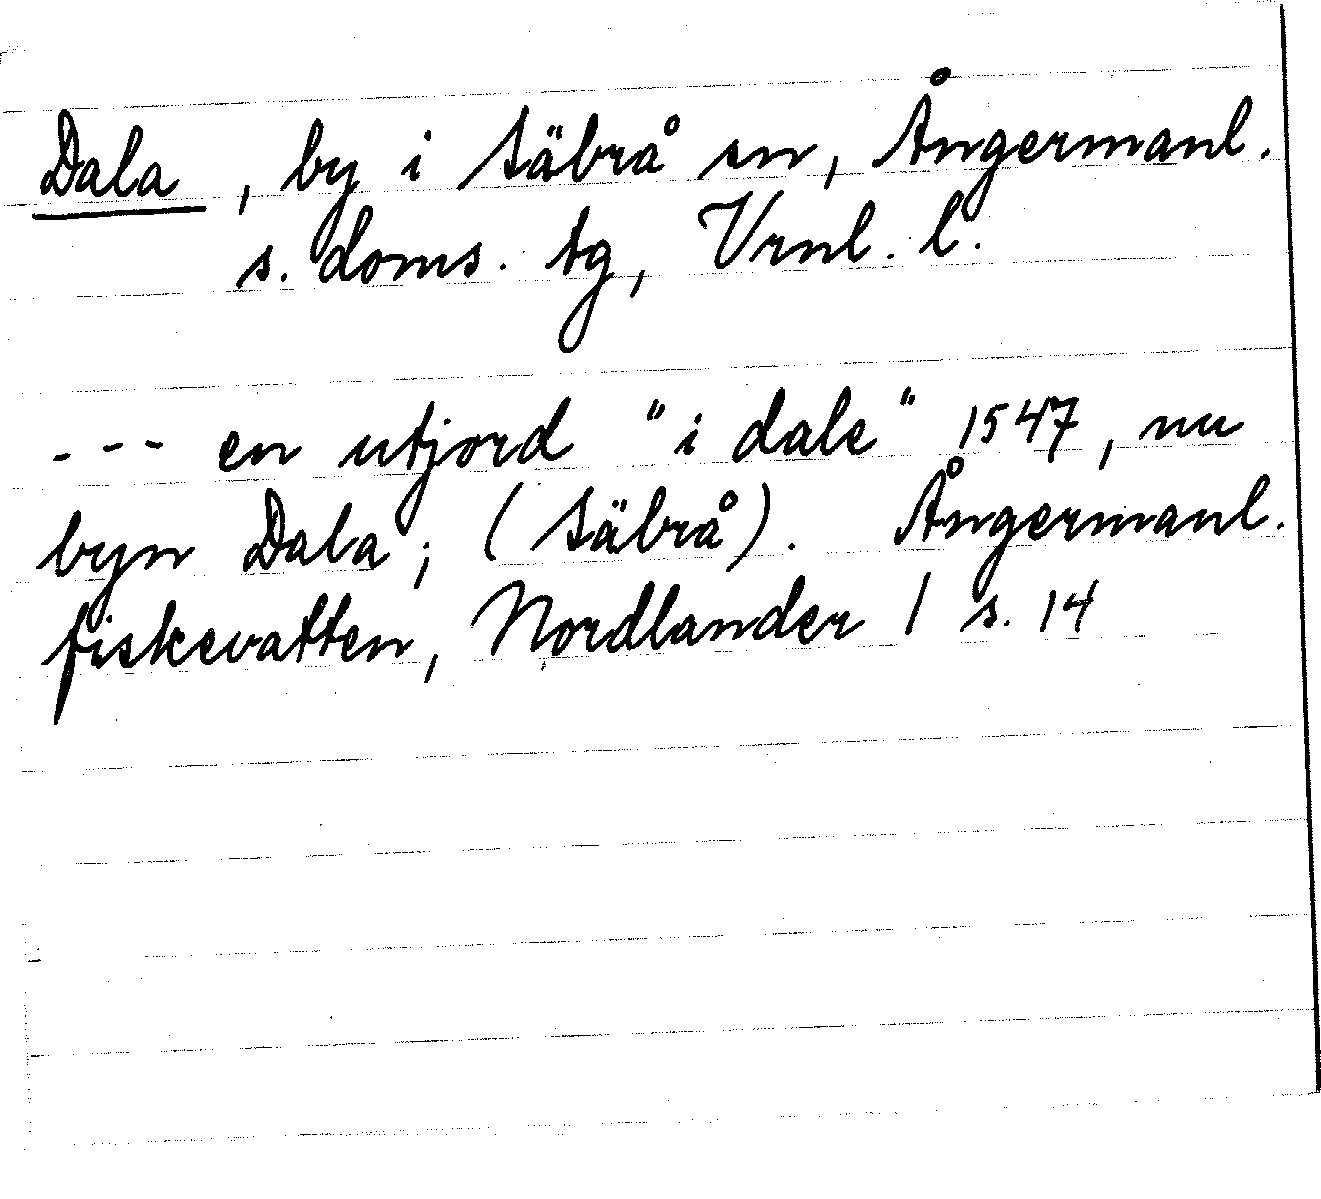 Dala, by i Säbrå sn, Ångermanl.
s. doms. tg, Vrnl. l.
--- en utjord "i dale" 1547, nu
byn Dala; (Säbrå). Ångermanl.
fiskevatten, Nordlander 1 s. 14